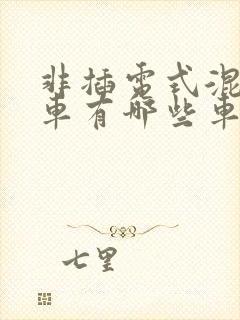 非插电式混
车有哪些车
七里